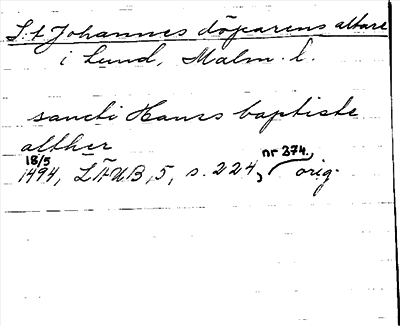 S:t Johannes döparens altare
i Lund, Malm. l.
sancti Hanss baptiste
alther
18/5
1494, LÄUB, 5, s. 224, nr 274. orig.